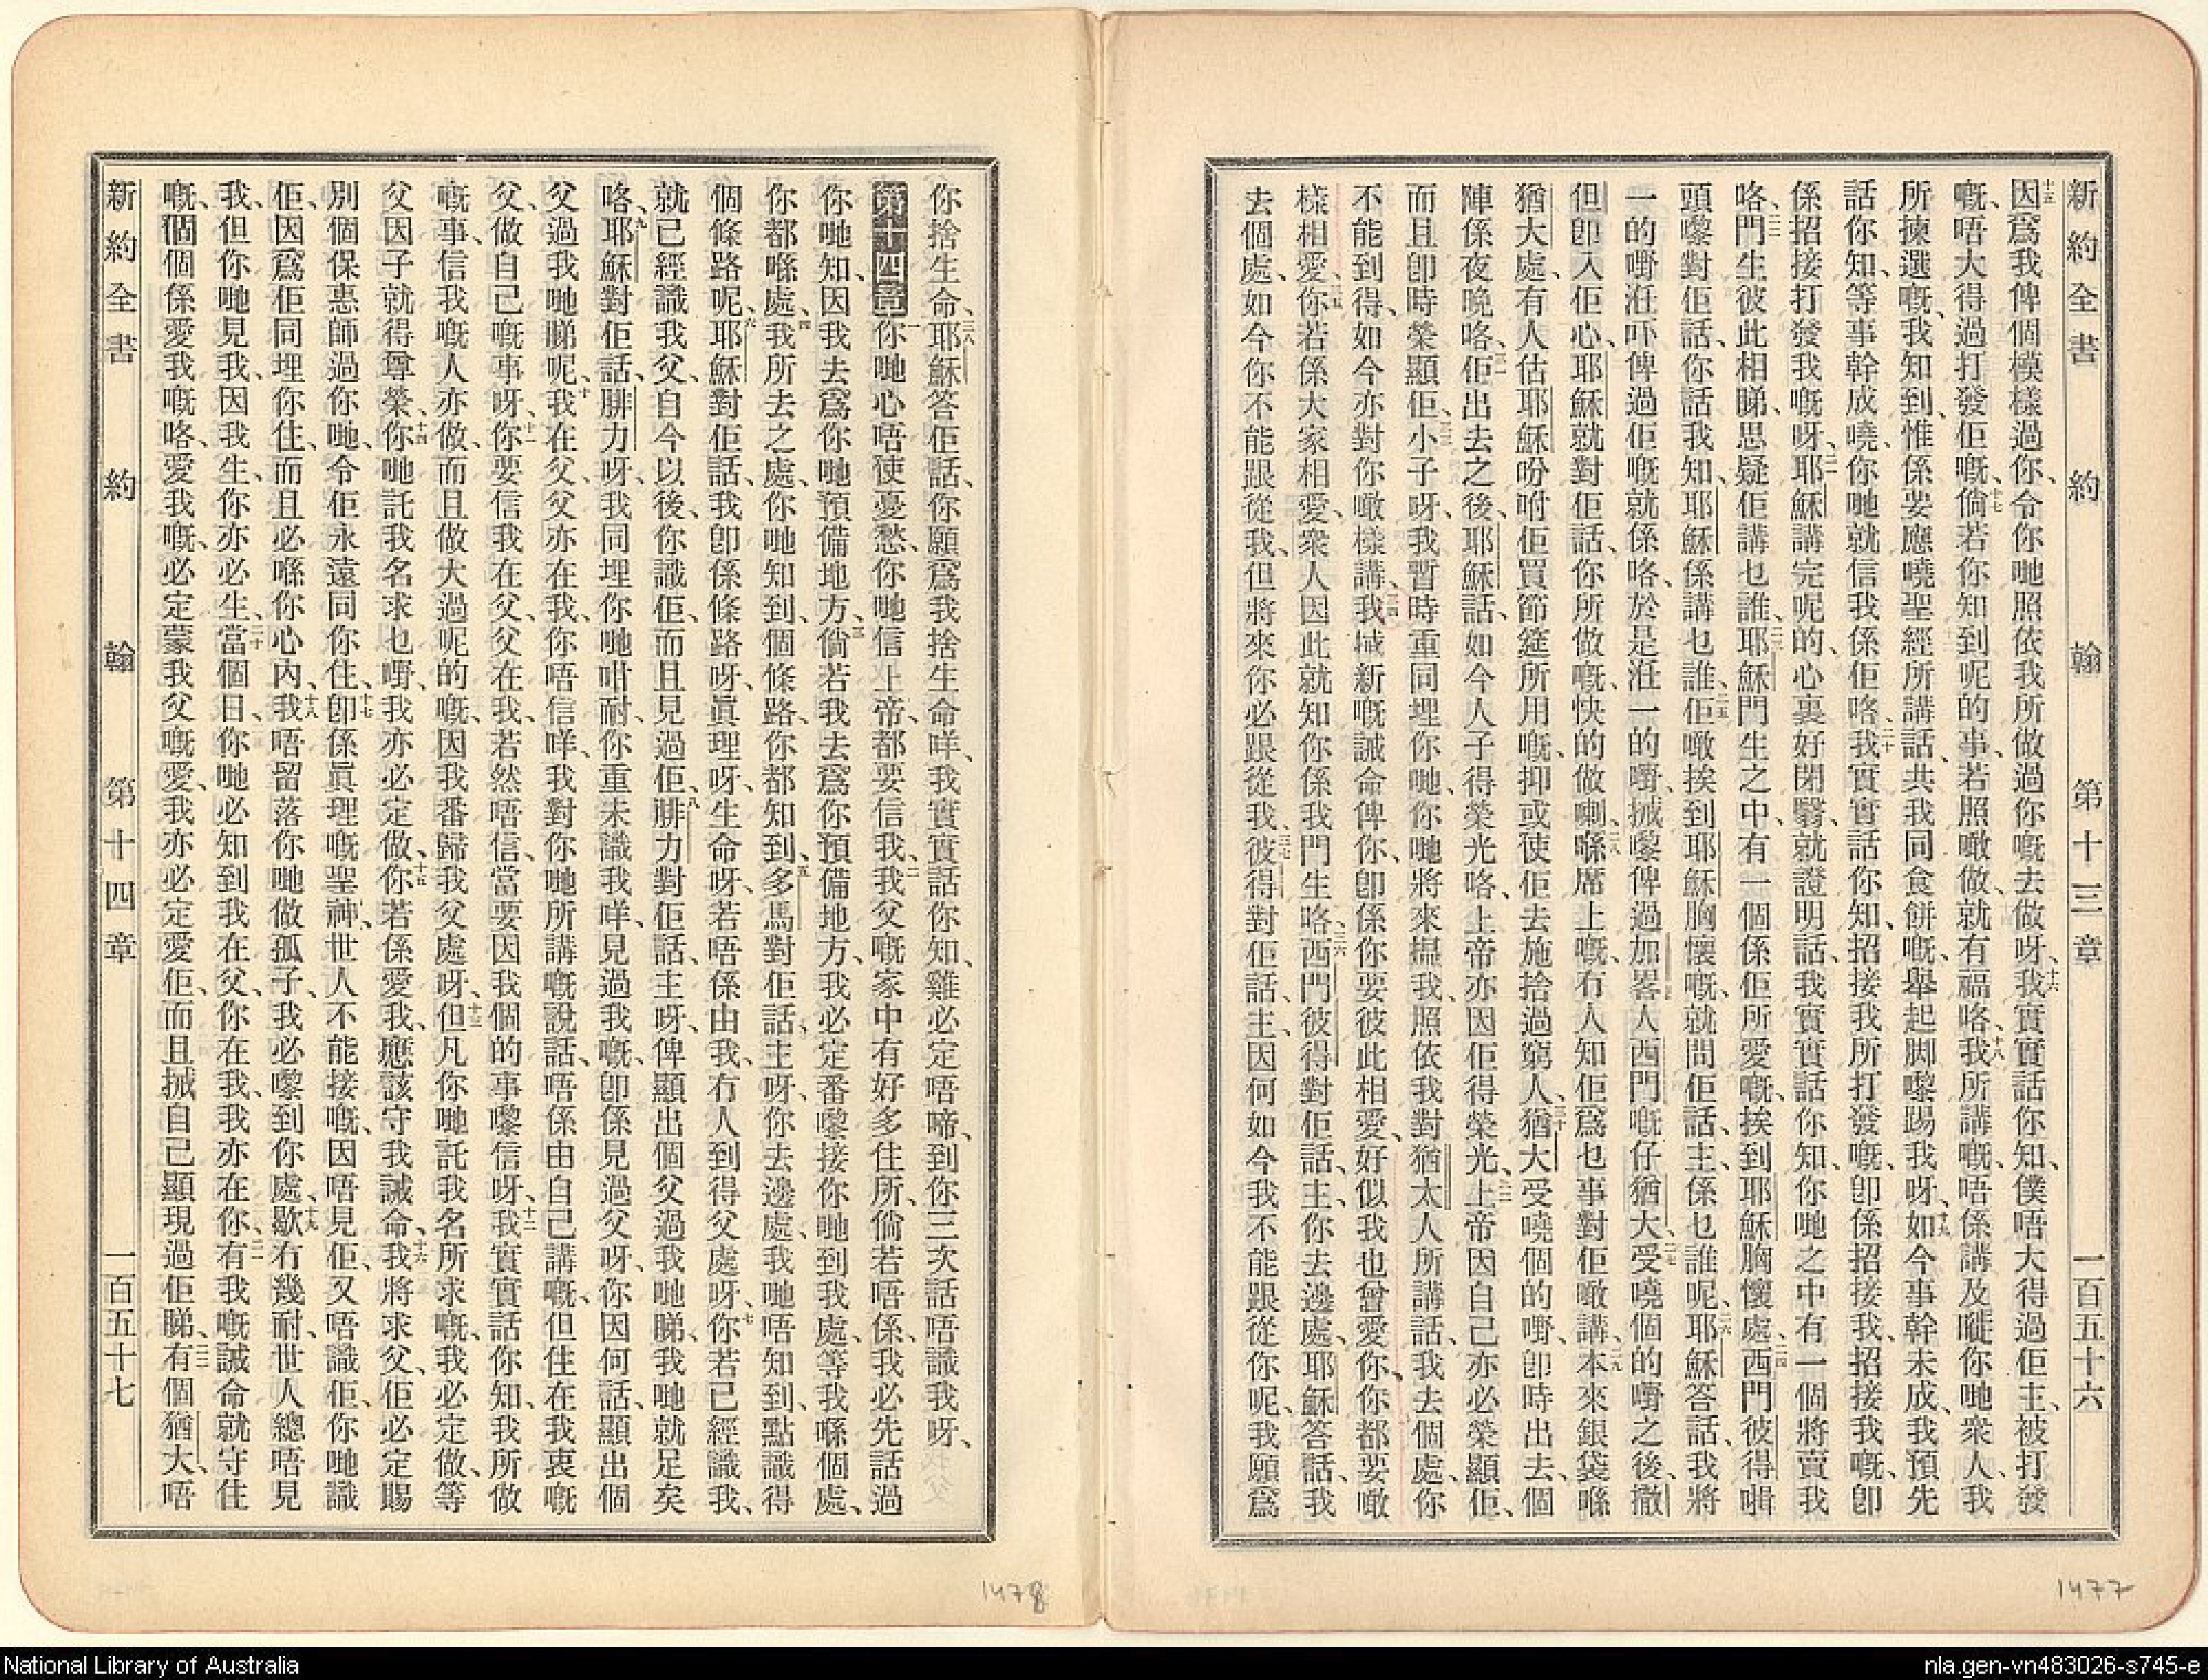 新約全書　約翰　第十三章　一百五十六
因爲我俾個模樣過你、令你哋照依我所做過你嘅去做呀、十六我實實話你知、僕唔大得過佢主、被打發
嘅、唔大得過打發佢嘅、十七倘若你知到呢的事、若照噉做、就有福咯、十八我所講嘅、唔係講及嚨你哋衆人、我
所揀選嘅、我知到、惟係要應嘵聖經所講話、共我同食餅嘅、舉起脚嚟踢我呀、十九如今事幹未成、我預先
話你知、等事幹成嘵、你哋就信我係佢咯、二十我實實話你知、招接我所打發嘅、卽係招接我、招接我嘅、卽
係招接打發我嘅呀、二一耶穌講完呢的、心裏好閉翳、就證明話、我實實話你知、你哋之中有一個將賣我
咯、二二門生彼此相睇、思疑佢講乜誰、二三耶穌門生之中、有一個係佢所愛嘅、挨到耶穌胸懷處、二四西門彼得啱
頭嚟對佢話、你話我知、耶穌係講乜誰、二五佢噉挨到耶穌胸懷嘅、就問佢話、主、係乜誰呢、二六耶穌答話、我將
一的嘢𣵀吓俾過佢嘅就係咯、於是𣵀一的嘢、搣嚟俾過加畧人西門嘅仔猶大、二七受嘵個的嘢之後、撒
但卽入佢心、耶穌就對佢話、你所做嘅、快的做喇、二八喺席上嘅、冇人知佢爲乜事對佢噉講、二九本來銀袋喺
猶大處、有人估耶穌吩咐佢買節筵所用嘅、抑或使佢去施捨過窮人、三十猶大受嘵個的嘢、卽時出去、個
陣係夜晚咯、三一佢出去之後、耶穌話、如今人子得榮光咯、上帝亦因佢得榮光、三二上帝因自己亦必榮顯佢、
而且卽時榮顯佢、三三小子呀、我暫時重同埋你哋、你哋將來搵我、照依我對猶太人所講話、我去個處、你
不能到得、如今亦對你噉樣講、三四我搣新嘅誡命俾你、卽係你要彼此相愛、好似我也曾愛你、你都要噉
樣相愛、三五你若係大家相愛、衆人因此就知你係我門生咯、三六西門彼得對佢話、主、你去邊處、耶穌答話、我
去個處、如今你不能跟從我、但將來你必跟從我、三七彼得對佢話、主、因何如今我不能跟從你呢、我願爲
你捨生命、三八耶穌答佢話、你願爲我捨生命咩、我實實話你知、雞必定唔啼、到你三次話唔識我呀、
第十四章　一你哋心唔使憂愁、你哋信上帝、都要信我、二我父嘅家中有好多住所、倘若唔係、我必先話過
你哋知、因我去爲你哋預備地方、三倘若我去爲你預備地方、我必定番嚟接你哋到我處、等我喺個處、
你都喺處、四我所去之處、你哋知到、個條路、你都知到、五多馬對佢話、主呀、你去邊處、我哋唔知到、點識得
個條路呢、六耶穌對佢話、我卽係條路呀、眞理呀、生命呀、若唔係由我、冇人到得父處呀、七你若已經識我、
就已經識我父、自今以後、你識佢、而且見過佢、八腓力對佢話、主呀、俾顯出個父過我哋睇、我哋就足矣
咯、九耶穌對佢話、腓力呀、我同埋你哋咁耐、你重未識我咩、見過我嘅、卽係見過父呀、你因何話、顯出個
父過我哋睇呢、十我在父、父亦在我、你唔信咩、我對你哋所講嘅說話、唔係由自己講嘅、但住在我裏嘅
父、做自己嘅事呀、十一你要信我在父、父在我、若然唔信、當要因我個的事嚟信呀、十二我實實話你知、我所做
嘅事、信我嘅人亦做、而且做大過呢的嘅、因我番歸我父處呀、十三但凡你哋託我名所求嘅、我必定做、等
父因子就得尊榮、十四你哋託我名求乜嘢、我亦必定做、十五你若係愛我、應該守我誡命、十六我將求父、佢必定賜
別個保惠師過你哋、令佢永遠同你住、十七卽係眞理嘅聖神、世人不能接嘅、因唔見佢、又唔識佢、你哋識
佢、因爲佢同埋你住、而且必喺你心內、十八我唔留落你哋做孤子、我必嚟到你處、十九歇冇幾耐、世人總唔見
我、但你哋見我、因我生、你亦必生、二十當個日、你哋必知到我在父、你在我、我亦在你、二一有我嘅誡命就守住
嘅、個個係愛我嘅咯、愛我嘅、必定蒙我父嘅愛、我亦必定愛佢、而且搣自己顯現過佢睇、二二有個猶大、唔
新約全書　約翰　第十四章　一百五十七
1478
1477
National Library of Australia
nla.gen-vn483026-s745-e